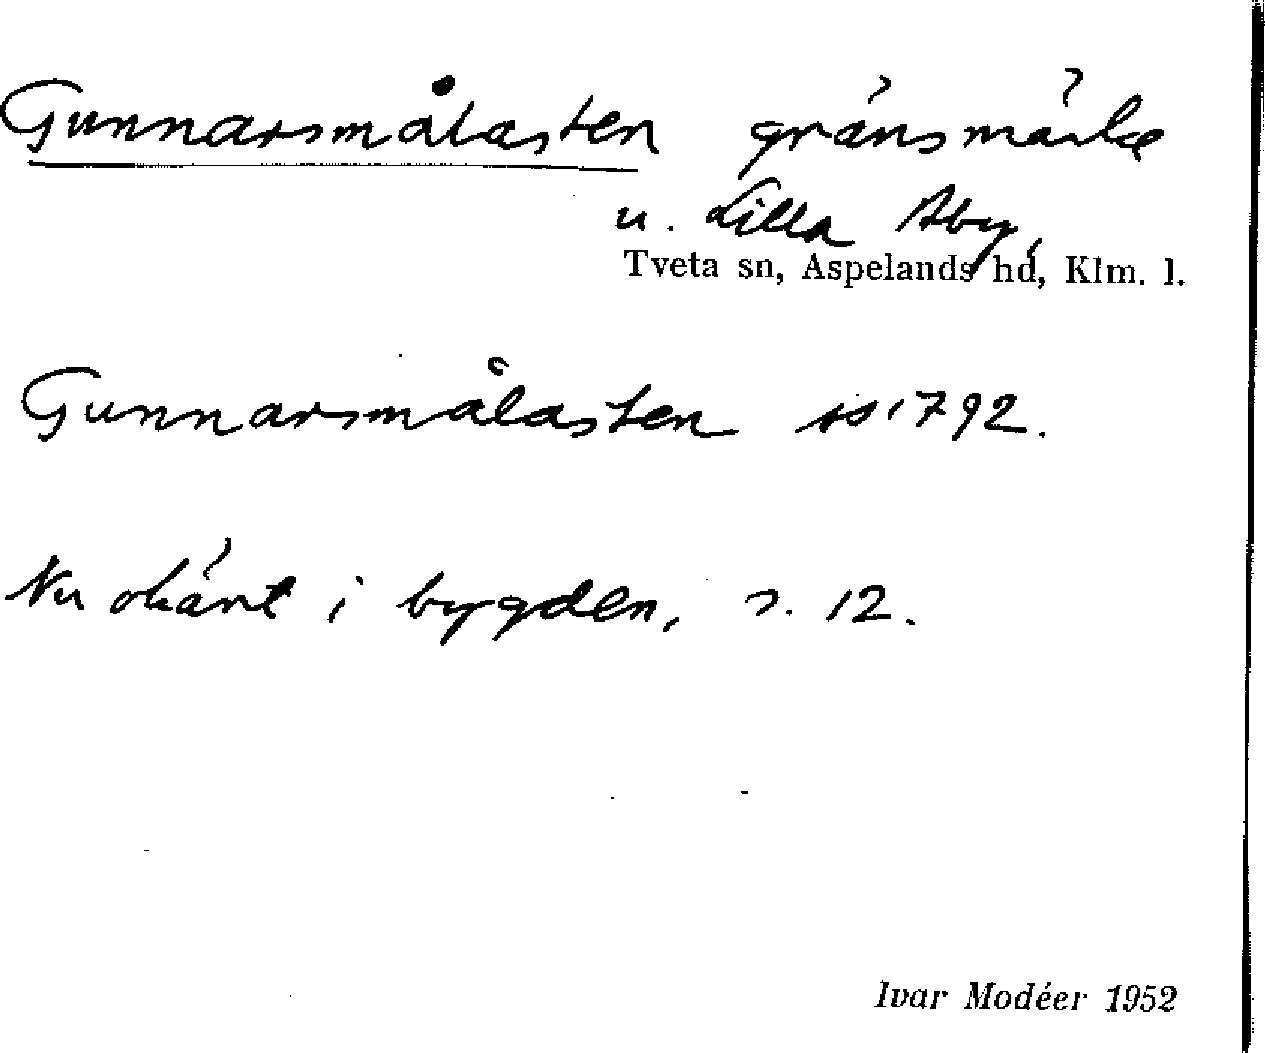 Gunnarsmålasten gränsmärke
u. Lilla Åby,
Tveta sn, Aspelands hd, Klm. l.
Gunnarsmålasten 1792.
Nu okänt i bygden, s. 12.
Ivar Modéer 1952